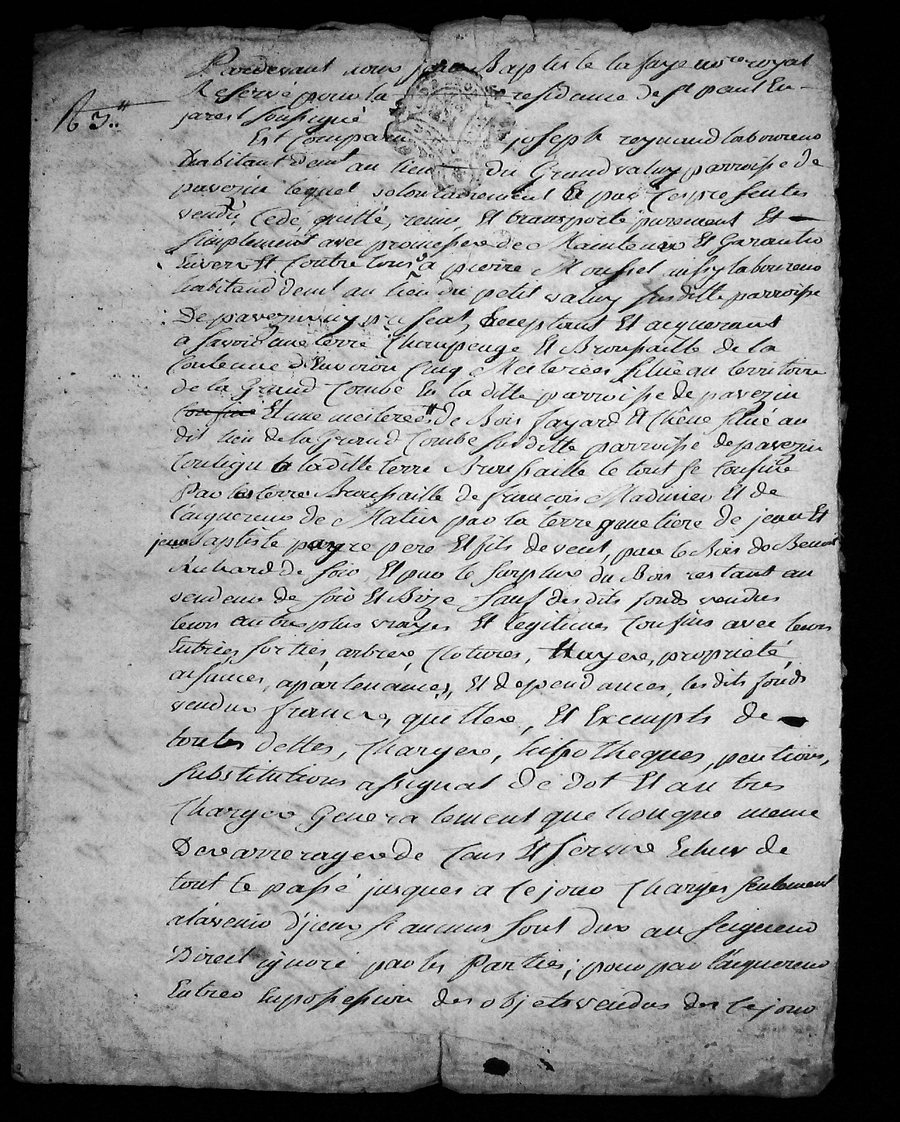 Pardevant nous jean Baptiste lafaye no.re royal
Reservé pour la residance de st paul En
jarest soussigné
Est Comparu joseph reynaud laboureur
habitant demt au lieu du Grand valuy parroisse de
pavezin lequel volontairement Et par Ces presentes
vendu, Cedé, quitté, remis, Et transporté purement Et
simplement avec promesse de Maintenir Et Garantir
Envers Et Contre tous a pierre Mousset aussy laboureur
habitand demt au lieu du petit valuy susditte parroisse
De pavezin icy present, acceptant Et acquerant
a savoir une terre Champenge Et Broussaille de la
Contenue d'Environ Cinq Meiterées situé au territoire
de la Grand Combe En la ditte parroisse de pavezin
Confine Et une meiterée de Bois fayard Et Chêne situé au
dit lieu de la Grand Combe susditte parroisse de pavezin
Contigu a la ditte terre Broussaille le tout se Confine
Par les terre Broussaille de francois Madinier Et de
l'acquereur de Matin par la terre de jean Et
jean Baptiste payre pere Et fils de vent, par le Bois de Benoit
Richard de soir, Et par le surplus du Bois restant au
vendeur de soir Et Bize sauf des dits fonds vendus
leurs autres plus vrayes Et legitimes Confins avec leurs
Entrées sorties arbres, Clotures, hayes, proprieté,
aisances, apartenances, Et dependances, les dits fonds
vendus francs, quittes, Et Exempts de
touttes dettes, Charges, hipotheques, pentions,
substitutions assignat de dot Et autres
Charges Generalement quelconque meme
Des arrerages de Cens Et servis Echus de
tout le passé jusques a Ce jour Charges seulement
a l'avenir d'jceux si aucuns sont dus au seigneur
Direct ignoré par les Parties; pour par l'acquereur
Entrer En possession des objets vendus des Ce jour